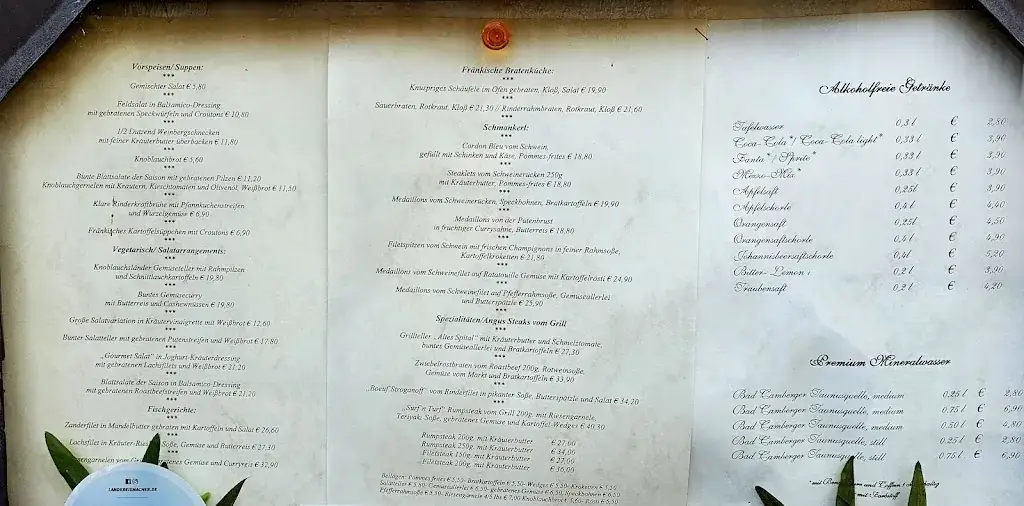 Vorspeisen/ Suppen:
***
Gemischter Salat € 5,80
***
Feldsalat in Balsamico-Dressing
mit gebratenen Speckwürfeln und Croutons € 10,80
***
1/2 Dutzend Weinbergschnecken
mit feiner Kräuterbutter überbacken € 11,80
***
Knoblauchbrot € 5,60
***
Bunte Blattsalate der Saison mit gebratenen Pilzen € 11,20
Knoblauchgernelen mit Kräutern, Kirschtomaten und Olivenöl, Weißbrot € 11,50
***
Klare Rinderkraftbrühe mit Pfannkuchenstreifen
und Wurzelgemüse € 6,90
***
Fränkisches Kartoffelsüppchen mit Croutons € 6,90
***
Vegetarisch/ Salatarrangements:
***
Knoblauchsländer Gemüseteller mit Rahmpilzen
und Schnittlauchkartoffeln € 19,80
***
Buntes Gemüsecurry
mit Butterreis und Cashewnüssen € 19,80
***
Große Salatvariation in Kräutervinaigrette mit Weißbrot € 12,60
***
Bunter Salatteller mit gebratenen Putenstreifen und Weißbrot € 17,80
***
„Gourmet Salat" in Joghurt-Kräuterdressing
mit gebratenen Lachsfilets und Weißbrot € 21,20
***
Blattsalate der Saison in Balsamico-Dressing
mit gebratenen Roastbeefstreifen und Weißbrot € 21,20
***
Fischgerichte:
***
Zanderfilet in Mandelbutter gebraten mit Kartoffeln und Salat € 26,60
***
Lachsfilet in Kräuter-Soße, Gemüse und Butterreis € 27,30
***
Gemüse und Curryreis € 32,90
LANDBEIGMACHER.DE
Fränkische Bratenküche:
***
Knuspriges Schäufele im Ofen gebraten, Kloß, Salat € 19,90
***
Sauerbraten, Rotkraut, Kloß € 21,30 // Rinderrahmbraten, Rotkraut, Kloß € 21,60
***
Schmankerl:
***
Cordon Bleu vom Schwein,
gefüllt mit Schinken und Käse, Pommes-frites € 18,80
***
Steaklets vom Schweinerücken 250g
mit Kräuterbutter, Pommes-frites € 18,80
***
Medaillons vom Schweinerücken, Speckbohnen, Bratkartoffeln € 19,90
***
Medaillons von der Putenbrust
in fruchtiger Currysahne, Butterreis € 18,80
***
Filetspitzen vom Schwein mit frischen Champignons in feiner Rahmsoße,
Kartoffelkroketten € 21,80
***
Medaillons vom Schweinefilet auf Ratatouille Gemüse mit Kartoffelrösti € 24,90
***
Medaillons vom Schweinefilet auf Pfefferrahmsoße, Gemüseallerlei
und Butterspätzle € 25,90
***
Spezialitäten/Angus Steaks vom Grill
***
Grillteller „Altes Spital" mit Kräuterbutter und Schmelztomate,
buntes Gemüseallerlei und Bratkartoffeln € 27,30
***
Zwiebelrostbraten vom Roastbeef 200g, Rotweinsoße,
Gemüse vom Markt und Bratkartoffeln € 33,90
***
„Boeuf Stroganoff" vom Rinderfilet in pikanter Soße, Butterspätzle und Salat € 34,20
***
„Surf n Turf" Rumpsteak vom Grill 200g. mit Riesengarnele,
Teriyaki Soße, gebratenes Gemüse und Kartoffel-Wedges € 40,30
***
Rumpsteak 200g. mit Kräuterbutter € 27,00
Rumpsteak 250g. mit Kräuterbutter € 34,00
Filetsteak 150g. mit Kräuterbutter € 27,00
Filetsteak 200g. mit Kräuterbutter € 36,00
Beilagen: Pommes frites € 5,50- Bratkartoffeln € 5,50- Wedges € 5,50- Kroketten € 5,50
Salatteller € 5,80- Gemüseallerlei € 6,50- gebratenes Gemüse € 6,50, Speckbohnen € 6,50
Pfefferrahmsoße € 3,50- Riesengarnele 4/5 lbs € 7,00 Knoblauchbrot € 5,60- Rösti € 5,50
Alkoholfreie Getränke
Tafelwasser 0,3 l € 2,80
Coca-Cola*/ Coca-Cola light* 0,33 l € 3,90
Fanta*/ Sprite* 0,33 l € 3,90
Mezzo-Mix* 0,33 l € 3,90
Apfelsaft 0,25l € 3,90
Apfelschorle 0,4 l € 4,40
Orangensaft 0,25l € 4,50
Orangensaftschorle 0,4 l € 4,90
Johannisbeersaftschorle 0,4l € 5,20
Bitter-Lemon 0,2 l € 3,90
Traubensaft 0,2 l € 4,20
Premium Mineralwasser
Bad Camberger Taunusquelle, medium 0,25 l € 2,80
Bad Camberger Taunusquelle, medium 0,75 l € 6,90
Bad Camberger Taunusquelle, medium 0,50 l € 4,80
Bad Camberger Taunusquelle, still 0,25 l € 2,80
Bad Camberger Taunusquelle, still 0,75 l € 6,90
mit Farbstoff